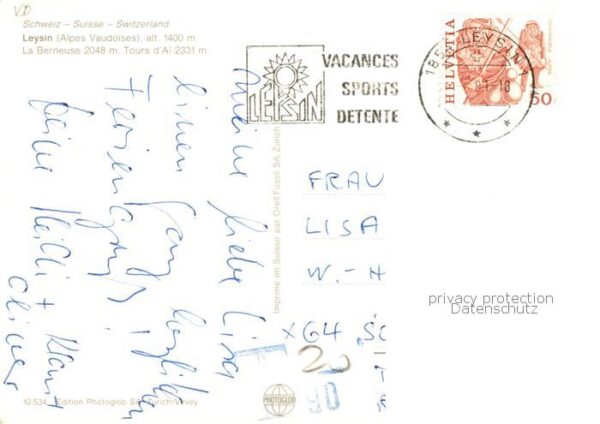 VD
Schweiz – Suisse – Switzerland
Leysin (Alpes Vaudoises). alt. 1400 m
La Berneuse 2048 m. Tours d'Aï 2331 m
LEYSIN
VACANCES
SPORTS
DETENTE
LEYSIN 1
-18
HELVETIA
50
Meine liebe Lisa
einen ganz herzlichen
Feriengruss!
Deine Heidi +
Oliver
Imprimé en Suisse par Orell Füssli SA, Zurich
FRAU
LISA
W.-H
x64
20
90
privacy protection
Datenschutz
PHOTOGLOB
10 534 Edition Photoglob SA, Zürich/Vevey